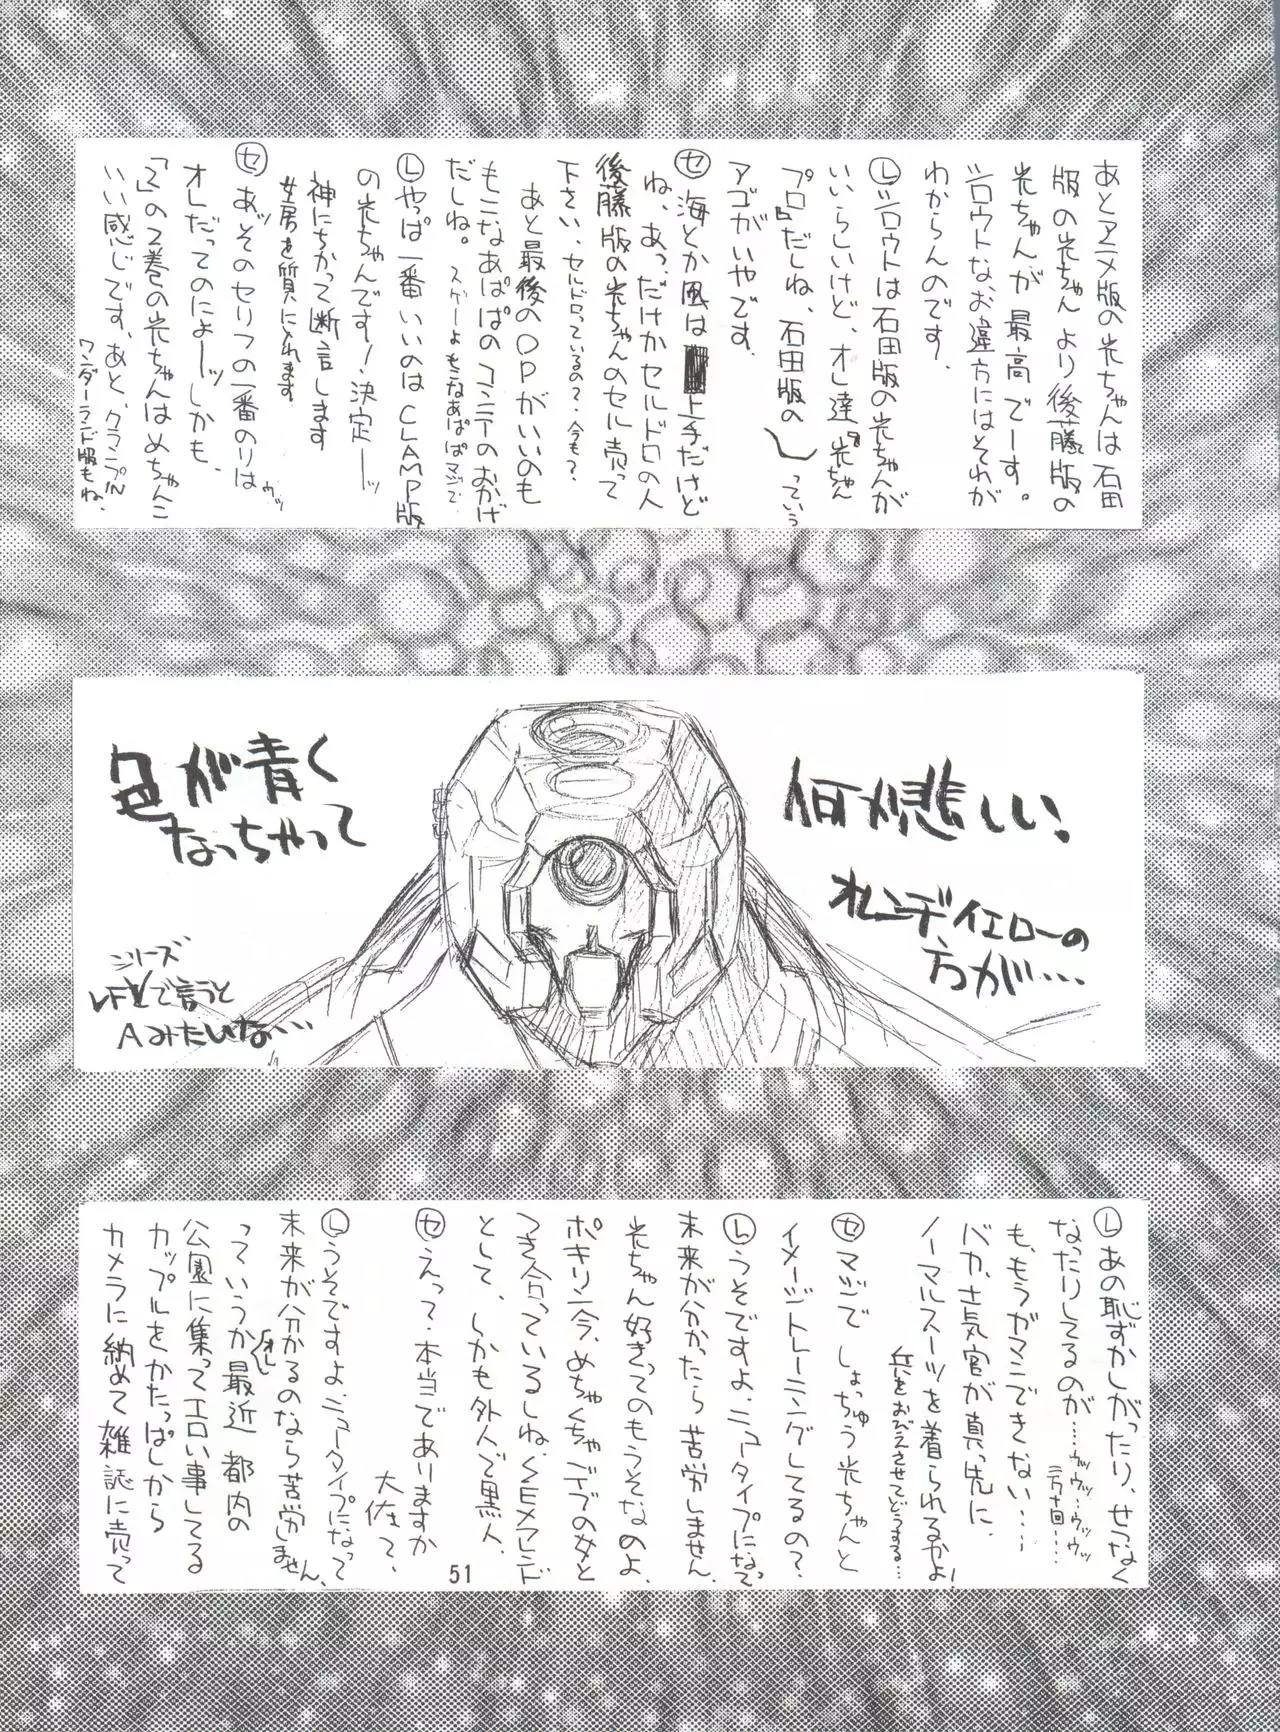 あとアニメ版の光ちゃんは石田
版の光ちゃんより後藤版の
光ちゃんが最高でーす。
シロウトなお違方にはそれが
わからんのです。
Ⓛシロウトは石田版の光ちゃんが
いいらしいけど、オレ達『光ちゃん
プロ』だしね、石田版の
っていう
アゴがいやです。
セ 海とか風は
上手だけど
ね、あっ、だけかセルドロの人
後藤版の光ちゃんのセル売って
下さい、セルドロっているの?、今も?
あと最後のOPがいいのも
もこなあぱぱのコンテのおかげ
だしね。スゲーよもこなあぱぱマジで
Ⓛやっぱ一番いいのはCLAMP版
の光ちゃんです!決定ーーッ
神にちかって断言します
女房を質に入れます
セ あッそのセリフの一番のりは
ウッ
オレだってのによーーッしかも、
「2」の2巻の光ちゃんはめちゃんこ
いい感じです、あと、クランプ
ワンダーランド版もね、
何が悲しい!
オレンヂイエローの
方が…
色が青く
なっちゃって
シリーズ
で言うと
Aみたいな…
Ⓛあの恥ずかしがったり、せつなく
なったりしてるのが…ウッウッ…ウッウッ
二万十回…
も、もうガマンできない…
バカ、士気官が真っ先に
ノーマルスーツを着られるかよ!
兵をおびえさせてどうする…
セ マジでしょっちゅう光ちゃんと
イメージトレーニングしてるの?
Ⓛうそですよ、ニュータイプになって
未来が分かったら苦労しません
光ちゃん好きってのもうそなのよ、
ポキリン今、めちゃくちゃデブの女と
つき合っているしね、SEXフレンド
として、しかも外人で黒人、
セ えっ?本当でありますか
大佐って、
Ⓛうそですよ、ニュータイプになって
未来が分かるのなら苦労しません、
っていうか最近「オレ」都内の
公園に集ってエロい事してる
カップルをかたっぱしから
カメラに納めて雑誌に売って
51